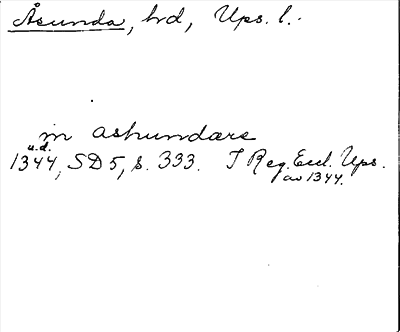 Åsunda, hd, Ups. l.
in ashundære
u.d.
1344, SD 5, s. 333. I Reg. Eccl. Ups.
av 1344.